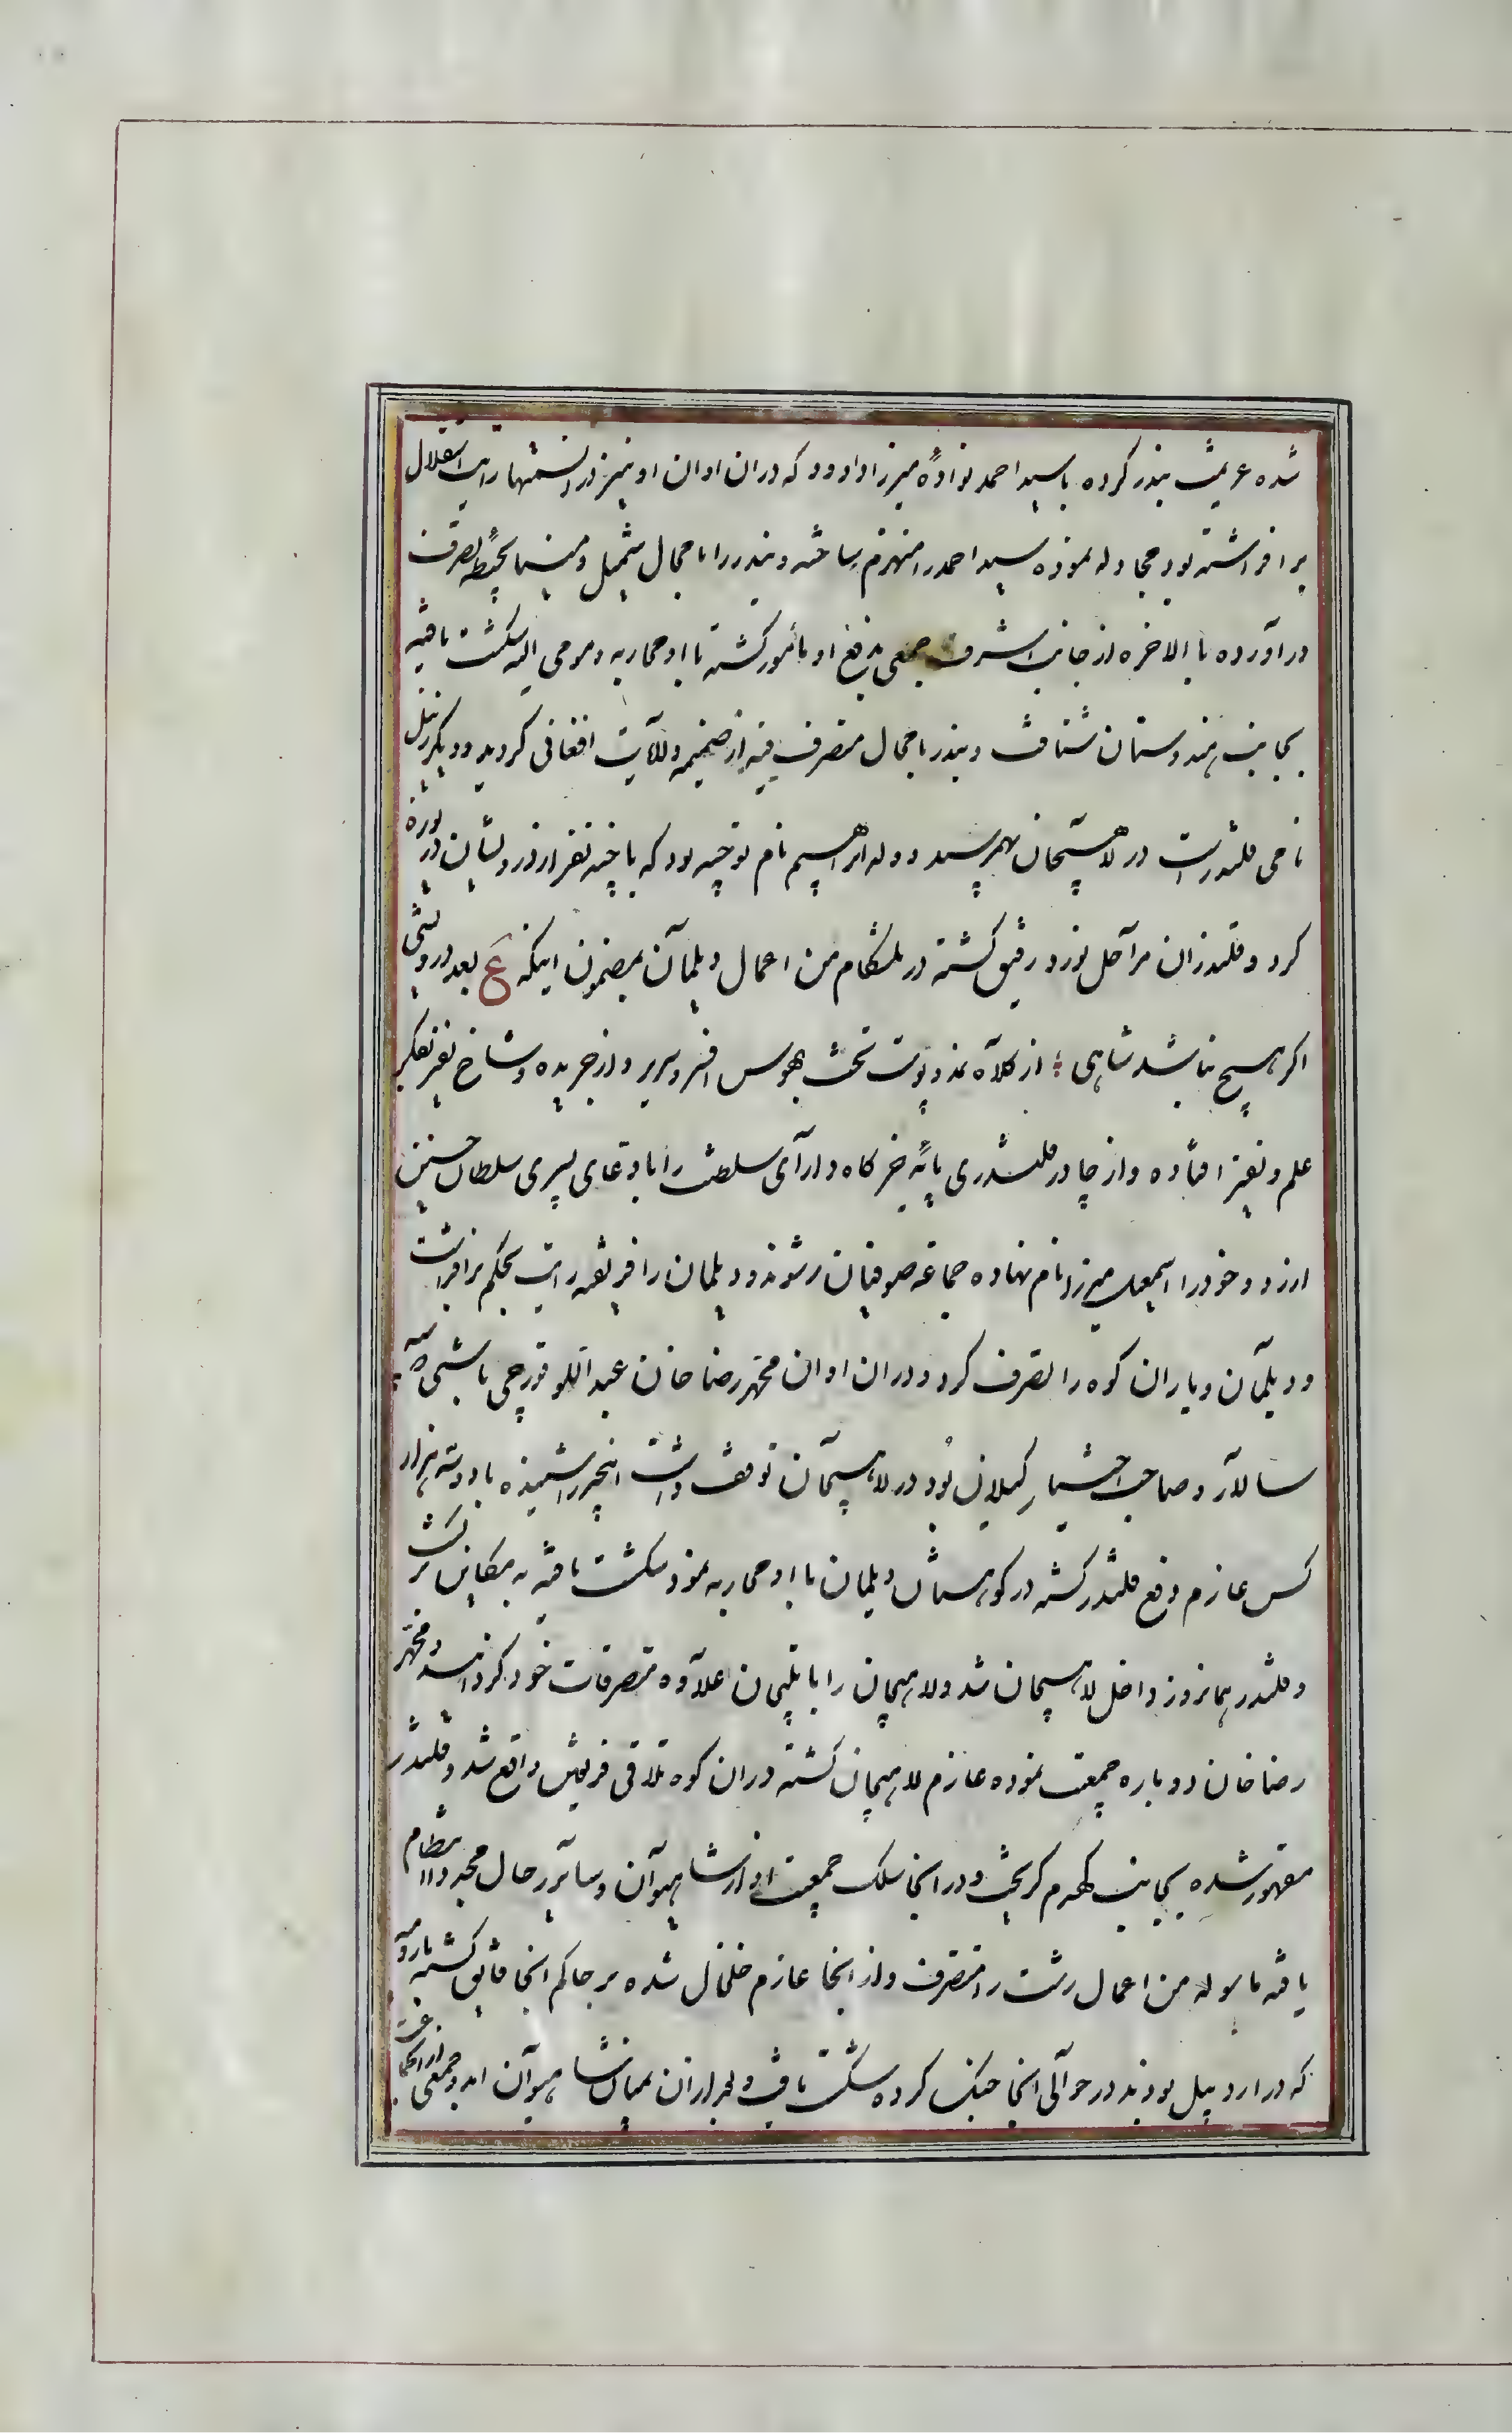 شده عزیمت بندر کرده با سید احمد نوادهٔ میرزا داود که در ان اوان او نیز در انسمتها رایت استقلال
برافراشته بود مجادله نموده سید احمد را منهزم ساخته و بندر را با محال شمیل و مینا بحیطهٔ تصرف
در آورده بالاخره از جانب اشرف جمعی بدفع او مأمور کشته با او محاربه و مومی الیه شکست یافته
بجانب هندوستان شتافت و بندر با محال متصرف فیه او ضمیمه ولایت افغانی کردید و دیکر زینل
نامی قلندریست در لاهیجان بهمرسید و وله ابراهیم نام بود که با چند نفر از درویشان در یوزه
کرد و قلندران مراحل نورد رفیق کشته در من اعمال دیلمان بمضمون اینکه ع بعد درویشی
اکر هیچ نباشد شاهی ؛ از کلاه نمد و پوست تخت بهوس افسر و سریر و از جریده و شاخ نفیر بفکر
علم و نفیر افتاده و از چادر قلندری پایهٔ خرکاه دارای سلطنت را با دعای پسری سلطان حسین
ارزد و خود را اسمعیل میرزا نام نهاده جماعه صوفیان و دیلمان را فریفته رایت تحکم برافراشت
و دیلمان و یاران کوه را تصرف کرد و در ان اوان محمد رضا خان عبداللو قورچی باشی که سپه
سالار و صاحب اختیار کیلان بود در لاهیجان توقف داشت اینخبر را شنیده با دو سه هزار
کس عازم دفع قلندر کشته در کوهستان دیلمان با او محاربه نمود شکست یافته به تنکابن برکشت
و قلندر همانروز داخل لاهیجان شد و لاهیجان را با علاوه متصرفات خود کردانید و محمد
رضا خان دوباره جمعیت نموده عازم لاهیجان کشته در ان کوه تلاقی فریقین واقع شد و قلندر
مقهور شده بجانب کهدم کریخت و در انجا سلک جمعیت او از شاهیوان و سایر رجال مجددا انتظام
یافته ماسوله من اعمال رشت را متصرف و از انجا عازم خلخال شده بر حاکم انجا فایق کشته با رومیه
که در اردبیل بودند در حوالی انجا جنک کرده شکست یافت و بعد از ان بمیان شاهیوان امد و جمعی از انجا